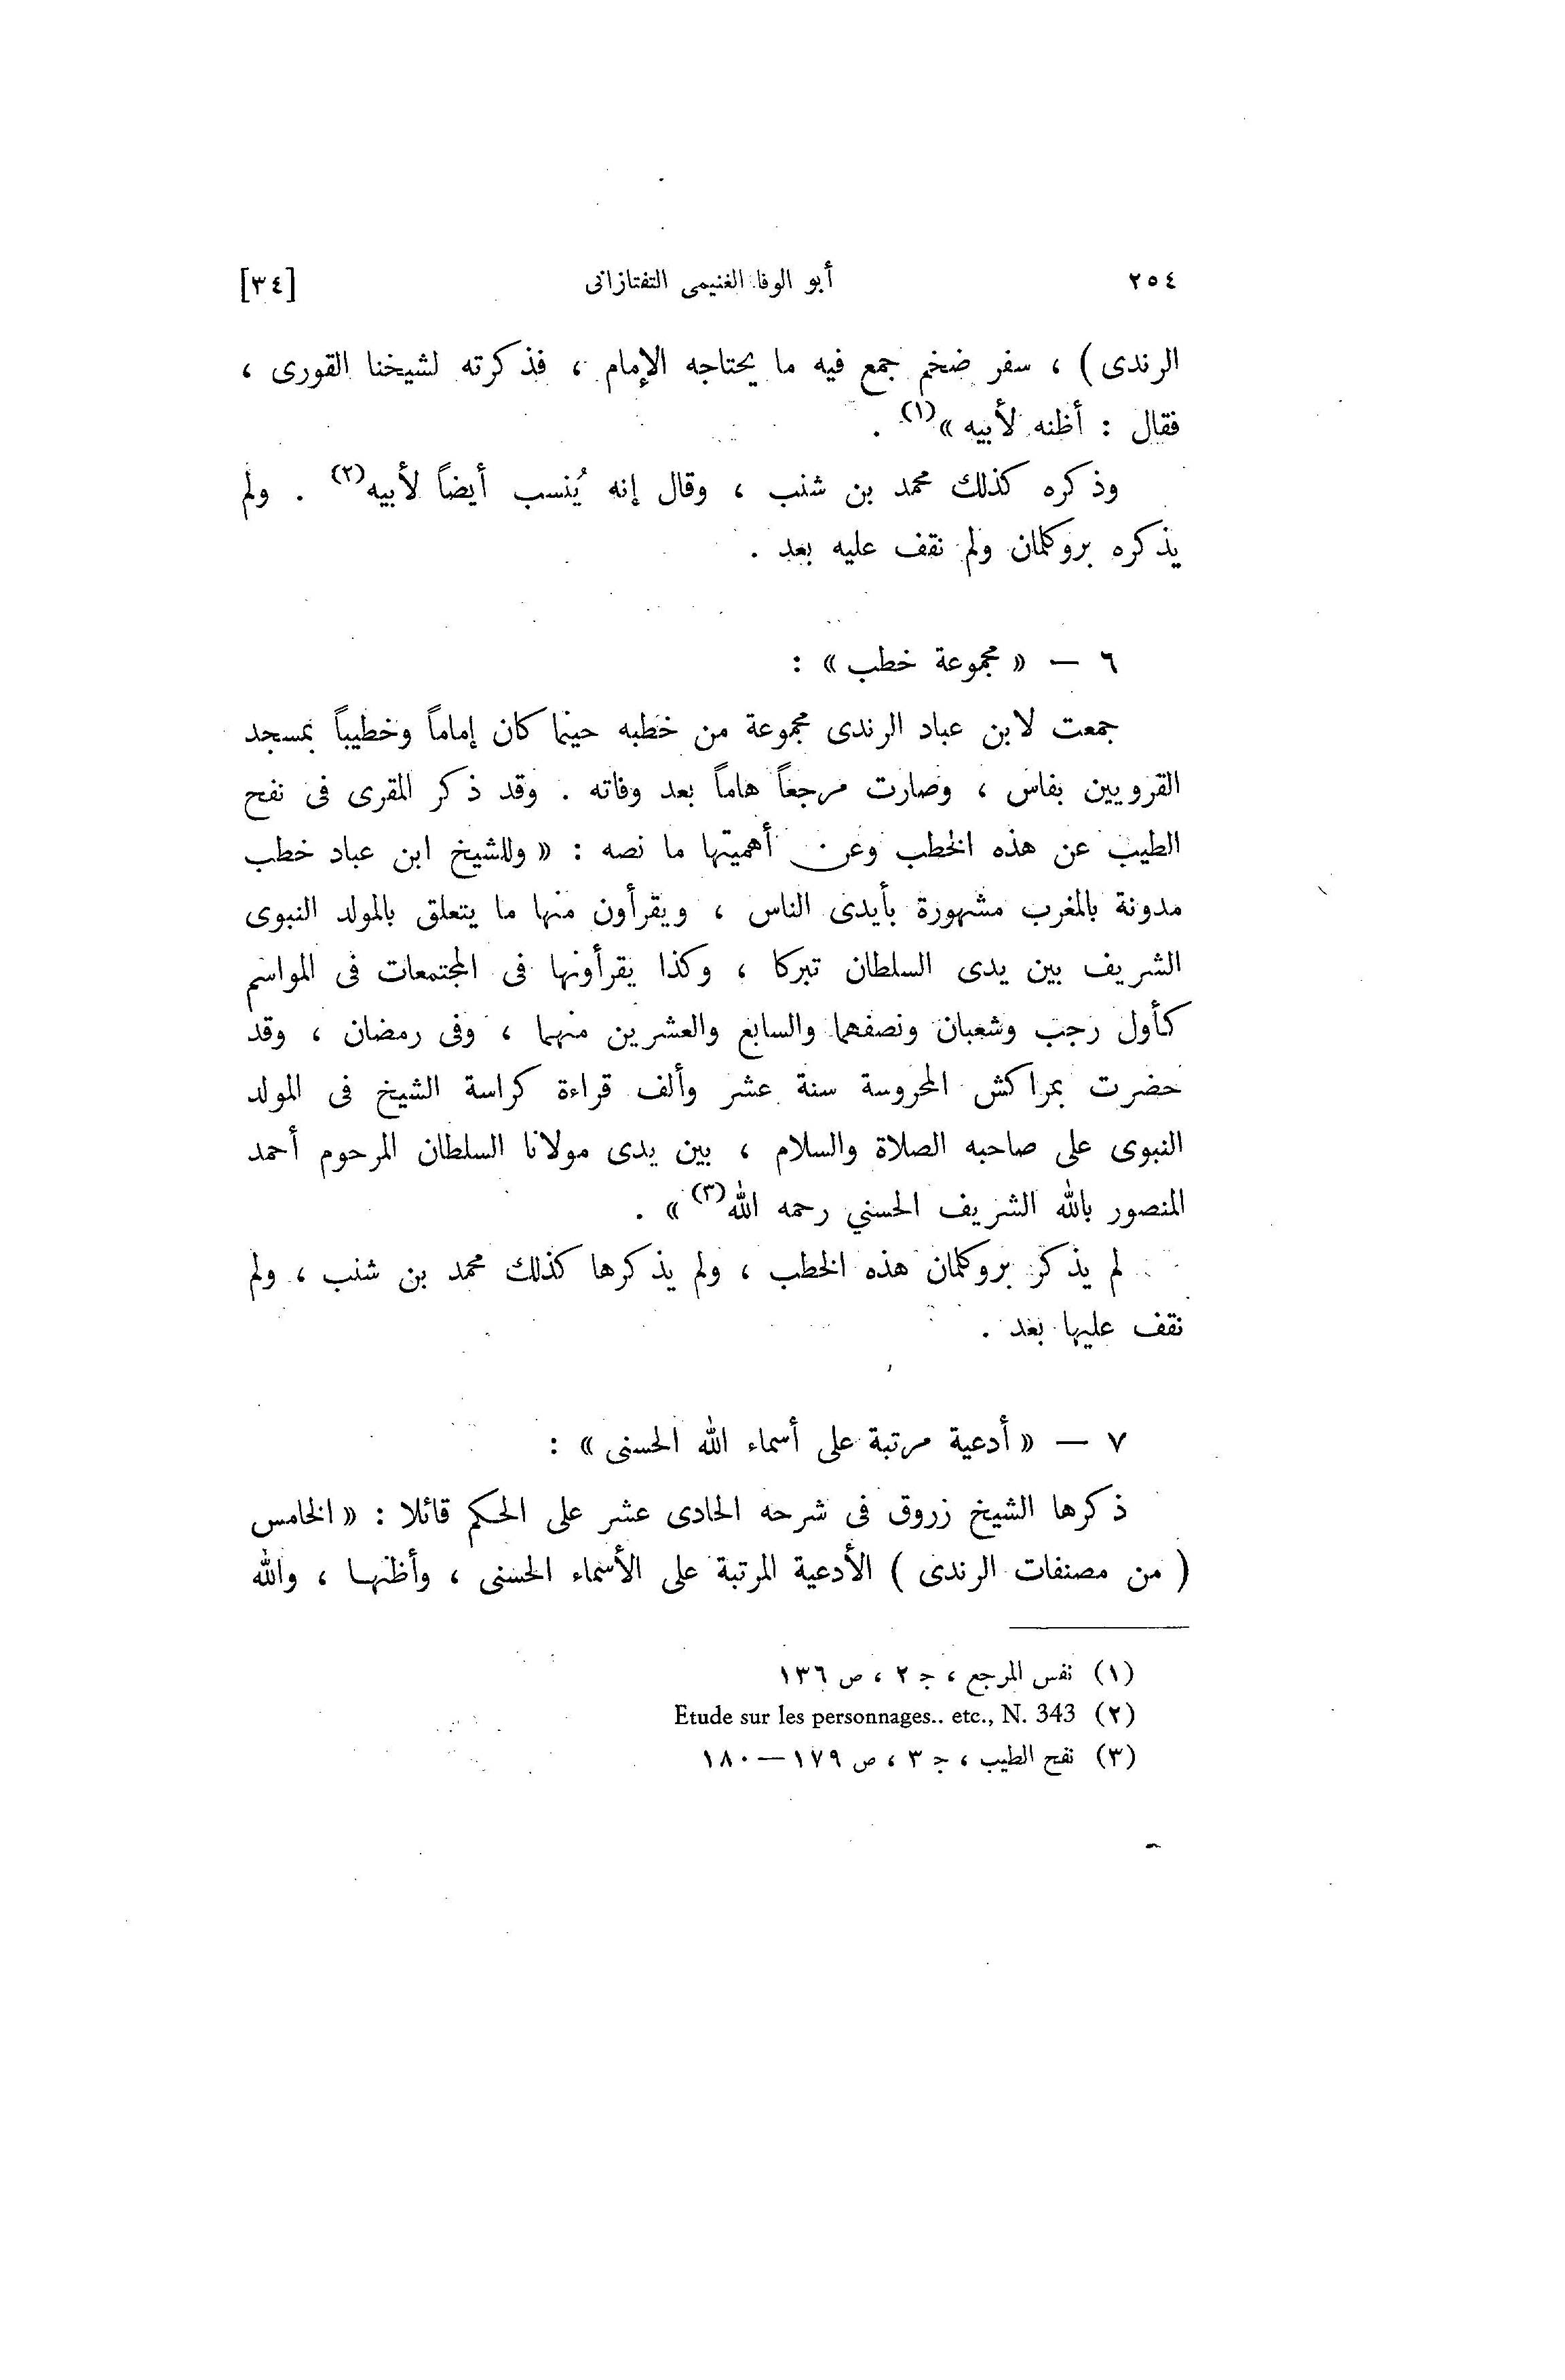 ٢٥٤ أبو الوفا الغنيمى التفتازانى [٣٤]
الرندى) ، سفر ضخم جمع فيه ما يحتاجه الإمام ، فذكرته لشيخنا القورى ،
فقال : أظنه لأبيه »(١) .
وذكره كذلك محمد بن شنب ، وقال إنه يُنسب أيضاً لأبيه(٢) . ولم
يذكره بروكلمان ولم نقف عليه بعد .
٦ — « مجموعة خطب » :
جمعت لابن عباد الرندى مجموعة من خطبه حينما كان إماماً وخطيباً بمسجد
القرويين بفاس ، وصارت مرجعاً هاماً بعد وفاته . وقد ذكر المقرى فى نفح
الطيب عن هذه الخطب وعن أهميتها ما نصه : « وللشيخ ابن عباد خطب
مدونة بالمغرب مشهورة بأيدى الناس ، ويقرأون منها ما يتعلق بالمولد النبوى
الشريف بين يدى السلطان تبركا ، وكذا يقرأونها فى المجتمعات فى المواسم
كأول رجب وشعبان ونصفهما والسابع والعشرين منهما ، وفى رمضان ، وقد
حضرت بمراكش المحروسة سنة عشر وألف قراءة كراسة الشيخ فى المولد
النبوى على صاحبه الصلاة والسلام ، بين يدى مولانا السلطان المرحوم أحمد
المنصور بالله الشريف الحسني رحمه الله(٣) » .
لم يذكر بروكلمان هذه الخطب ، ولم يذكرها كذلك محمد بن شنب ، ولم
نقف عليها بعد .
٧ — « أدعية مرتبة على أسماء الله الحسنى » :
ذكرها الشيخ زروق فى شرحه الحادى عشر على الحكم قائلا : « الخامس
( من مصنفات الرندى ) الأدعية المرتبة على الأسماء الحسنى ، وأظنها ، والله
(١) نفس المرجع ، ج ٢ ، ص ١٣٦
(٢) Etude sur les personnages.. etc., N. 343
(٣) نفح الطيب ، ج ٣ ، ص ١٧٩—١٨٠